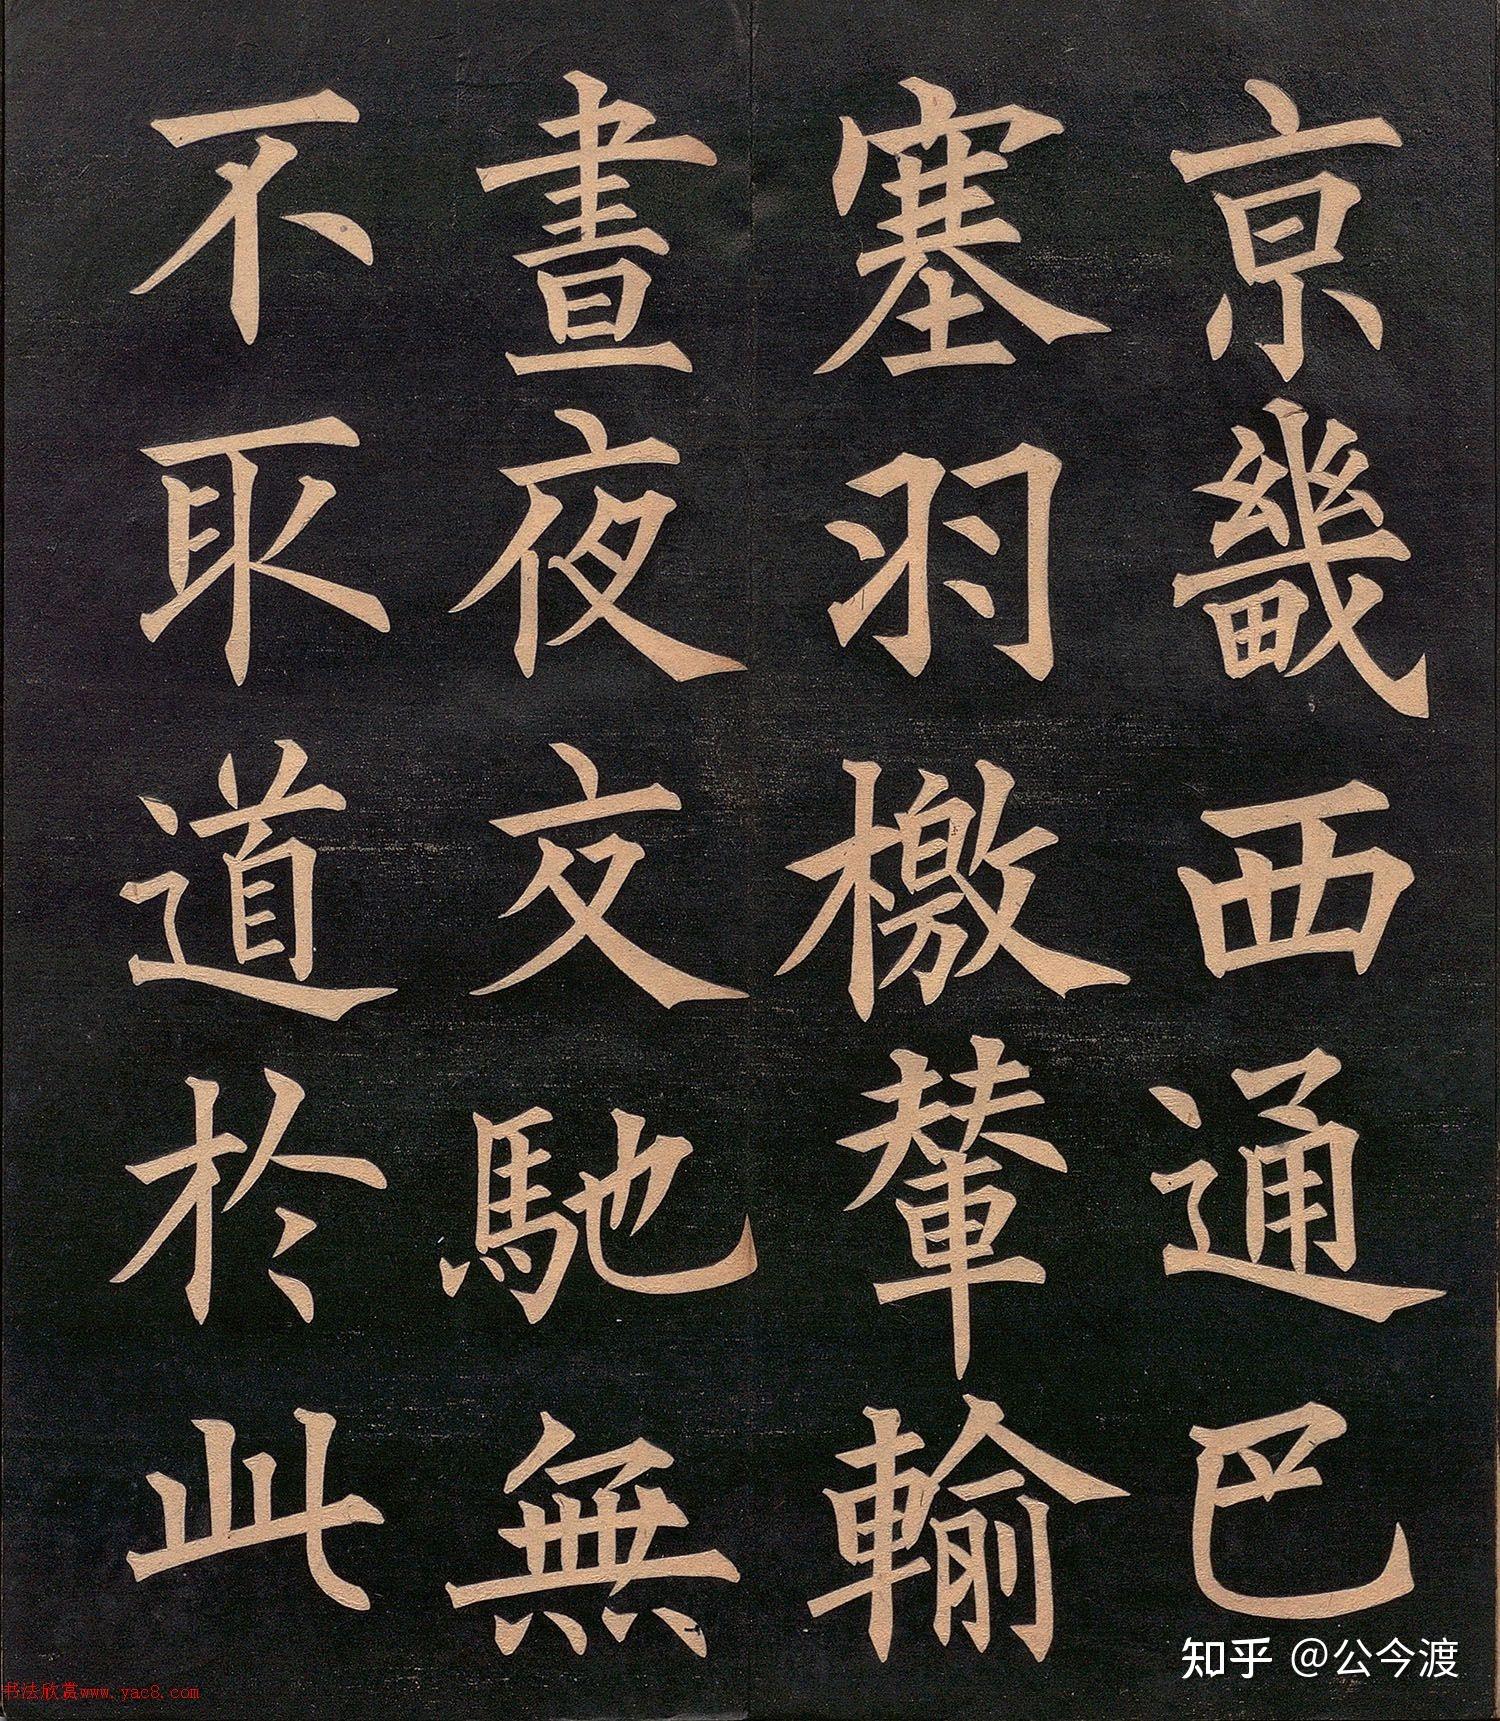 京畿西通巴
塞羽檄輦輸
晝夜交馳無
不取道於此
知乎 @公今渡
书法欣赏www.yac8.com